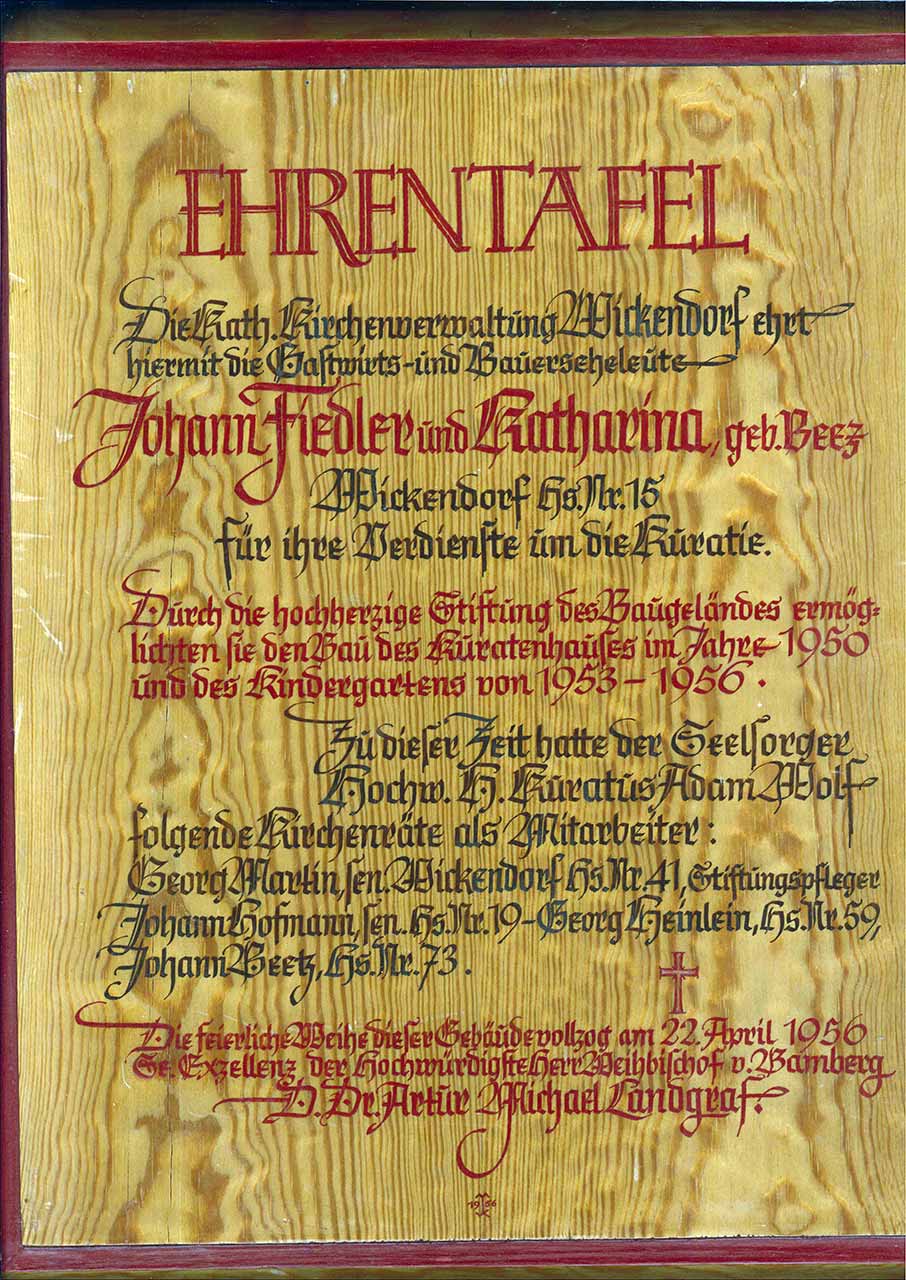 EHRENTAFEL
Die Kath. Kirchenverwaltung Wickendorf ehrt
hiermit die Gastwirts- und Bauerseheleute
Johann Fiedler und Katharina, geb. Beez
Wickendorf Hs. Nr. 15
für ihre Verdienste um die Kuratie.
Durch die hochherzige Stiftung des Baugeländes ermög=
lichten sie den Bau des Kuratenhauses im Jahre 1950
und des Kindergartens von 1953 – 1956.
Zu dieser Zeit hatte der Seelsorger
Hochw. H. Kuratus Adam Wolf
folgende Kirchenräte als Mitarbeiter:
Georg Martin, sen. Wickendorf Hs. Nr. 41, Stiftungspfleger
Johann Hofmann, sen. Hs. Nr. 19 - Georg Heinlein, Hs. Nr. 59,
Johann Beetz, Hs. Nr. 73.
Die feierliche Weihe dieser Gebäude vollzog am 22. April 1956
Se. Exzellenz der Hochwürdigste Herr Weihbischof v. Bamberg
D. Dr. Artur Michael Landgraf.
1956